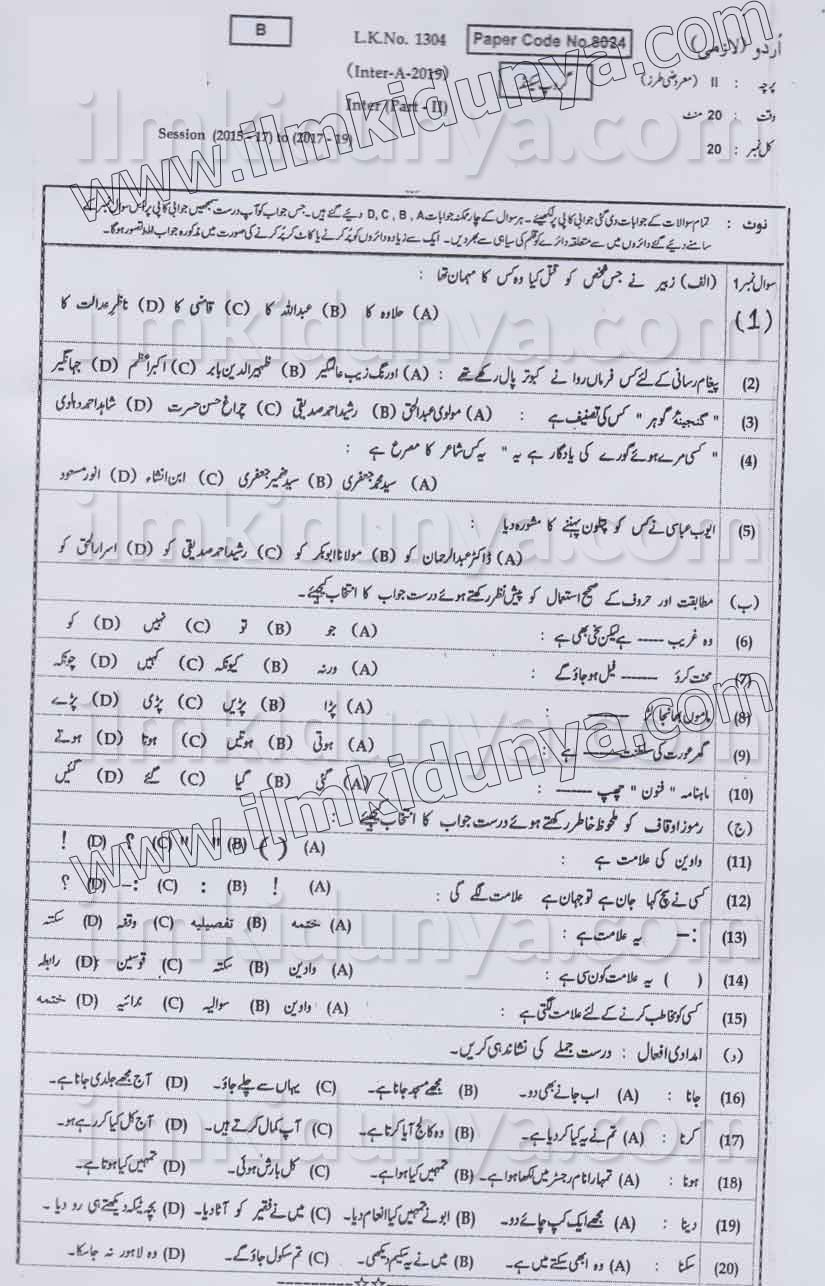 B
L.K.No. 1304
Paper Code No.8024
اُردو (لازمی)
(Inter-A-2019)
پرچہ : II (معروضی طرز)
Inter (Part - II)
وقت : 20 منٹ
Session (2015 - 17) to (2017 - 19)
کل نمبر : 20
نوٹ : تمام سوالات کے جوابات دی گئی جوابی کاپی پر لکھیئے۔ ہر سوال کے چار ممکنہ جوابات D , C , B , A دیئے گئے ہیں۔ جس جواب کو آپ درست سمجھیں جوابی کاپی پر اُس سوال نمبر کے
سامنے دیئے گئے دائروں میں سے متعلقہ دائرے کو قلم کی سیاہی سے بھر دیں۔ ایک سے زیادہ دائروں کو پُر کرنے یا کاٹ کر پُر کرنے کی صورت میں مذکورہ جواب غلط تصور ہوگا۔
سوال نمبر 1 (الف) زبیر نے جس شخص کو قتل کیا وہ کس کا مہمان تھا :
(1) (A) حلاوہ کا (B) عبداللہ کا (C) قاضی کا (D) ناظرِ عدالت کا
(2) پیغام رسانی کے لئے کس فرماں روا نے کبوتر پال رکھے تھے : (A) اورنگ زیب عالمگیر (B) ظہیر الدین بابر (C) اکبر اعظم (D) جہانگیر
(3) " گنجینۂ گوہر " کس کی تصنیف ہے : (A) مولوی عبدالحق (B) رشید احمد صدیقی (C) چراغ حسن حسرت (D) شاہد احمد دہلوی
(4) " کسی مرے ہوئے گورے کی یادگار ہے یہ " یہ کس شاعر کا مصرع ہے :
(A) سید محمد جعفری (B) سید ضمیر جعفری (C) ابن انشاء (D) انور مسعود
(5) ایوب عباسی نے کس کو پتلون پہننے کا مشورہ دیا :
(A) ڈاکٹر عبدالرحمان کو (B) مولانا ابوبکر کو (C) رشید احمد صدیقی کو (D) اسرار الحق کو
(ب) مطابقت اور حروف کے صحیح استعمال کو پیش نظر رکھتے ہوئے درست جواب کا انتخاب کیجیئے۔
(6) وہ غریب ----- ہے لیکن سخی بھی ہے : (A) جو (B) تو (C) نہیں (D) کو
(7) محنت کرو ------ فیل ہو جاؤ گے : (A) ورنہ (B) کیونکہ (C) کہیں (D) چونکہ
(8) ماموں بھانجا لڑ ------ : (A) پڑا (B) پڑیں (C) پڑی (D) پڑے
(9) گھر عورت کی سلطنت ------ ہے : (A) ہوتی (B) ہوتیں (C) ہوتا (D) ہوتے
(10) ماہنامہ " فنون " چھپ ------ : (A) گئی (B) گیا (C) گئے (D) گئیں
(ج) رموز اوقاف کو ملحوظ خاطر رکھتے ہوئے درست جواب کا انتخاب کیجیئے :
(11) واوین کی علامت ہے : (A) ( ) (B) " " (C) ؟ (D) !
(12) کسی نے سچ کہا جان ہے تو جہان ہے علامت لگے گی : (A) ! (B) : (C) :- (D) ؟
(13) :- یہ علامت ہے : (A) ختمہ (B) تفصیلیہ (C) وقفہ (D) سکتہ
(14) ( ) یہ علامت کون سی ہے : (A) واوین (B) سکتہ (C) قوسین (D) رابطہ
(15) کسی کو مخاطب کرنے کے لئے علامت لگتی ہے : (A) واوین (B) سوالیہ (C) ندائیہ (D) ختمہ
(د) امدادی افعال : درست جملے کی نشاندہی کریں۔
(16) جانا : (A) اب جانے بھی دو۔ (B) مجھے مسجد جانا ہے۔ (C) یہاں سے چلے جاؤ۔ (D) آج مجھے جلدی جانا ہے۔
(17) کرنا : (A) تم نے یہ کیا کر دیا ہے۔ (B) وہ کالج آیا کرتا ہے۔ (C) آپ کمال کرتے ہیں۔ (D) آج کل کیا کر رہے ہو۔
(18) ہونا : (A) تمہارا نام رجسٹر میں لکھا ہوا ہے۔ (B) تمہیں کیا ہوا ہے۔ (C) کل بارش ہوئی۔ (D) تمہیں کیا ہوتا ہے۔
(19) دینا : (A) مجھے ایک کپ چائے دو۔ (B) ابو نے تمہیں کیا انعام دیا۔ (C) میں نے فقیر کو آٹا دیا۔ (D) بچہ ٹیکہ دیکھتے ہی رو دیا۔
(20) سکنا : (A) وہ ابھی سکتے میں ہے۔ (B) میں نے یہ سکیم دیکھی۔ (C) تم سکول جاؤ گے۔ (D) وہ لاہور نہ جا سکا۔
www.ilmkidunya.com
ilmkidunya.com